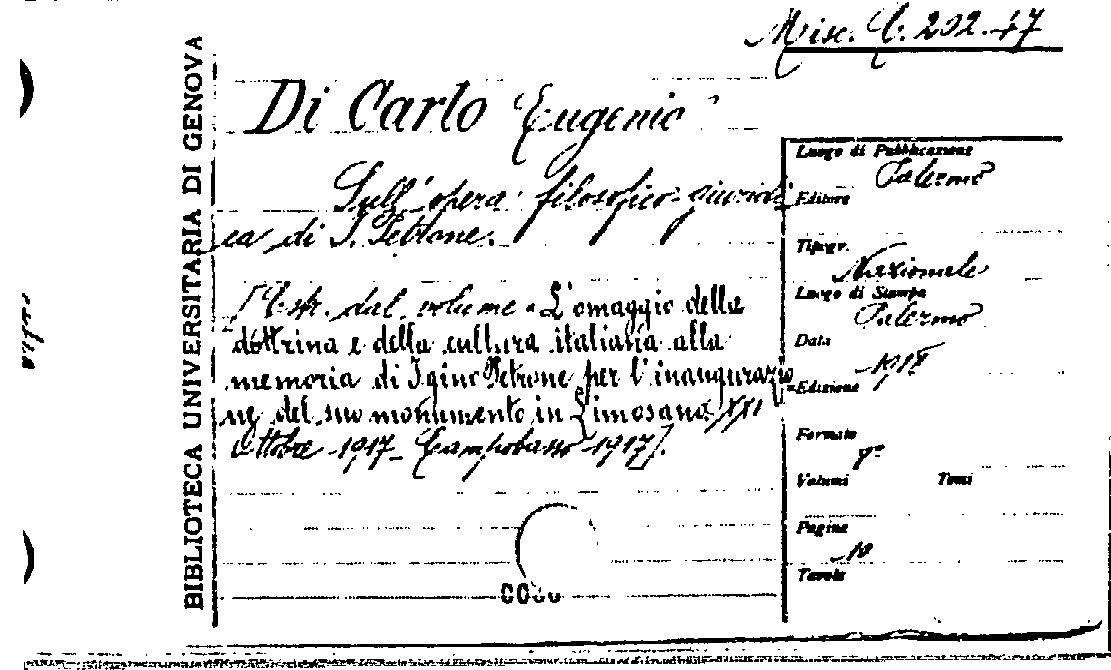 Misc. C. 202.47
BIBLIOTECA UNIVERSITARIA DI GENOVA
Di Carlo Eugenio
Sull'opera filosofico-giuridi
ca di I. Petrone.
[Estr. dal volume "L'omaggio della
dottrina e della cultura italiana alla
memoria di Igino Petrone per l'inaugurazio
ne del suo monumento in Limosano XXI
Ottobre 1917_ Campobasso 1917].
Luogo di Pubblicazione
Palermo
Editore
Tipogr.
Nazionale
Luogo di Stampa
Palermo
Data
Edizione
Formato
8°
Volumi Tomi
Pagine
Tavole